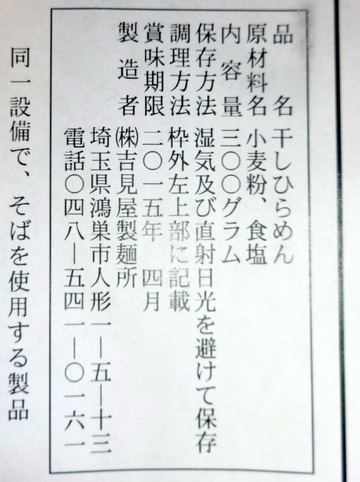 品名 干しひらめん
原材料名 小麦粉、食塩
内容量 三〇〇グラム
保存方法 湿気及び直射日光を避けて保存
調理方法 枠外左上部に記載
賞味期限 二〇一五年 四月
製造者 ㈱吉見屋製麺所
埼玉県鴻巣市人形一―五―十三
電話〇四八―五四一―〇一六一
同一設備で、そばを使用する製品